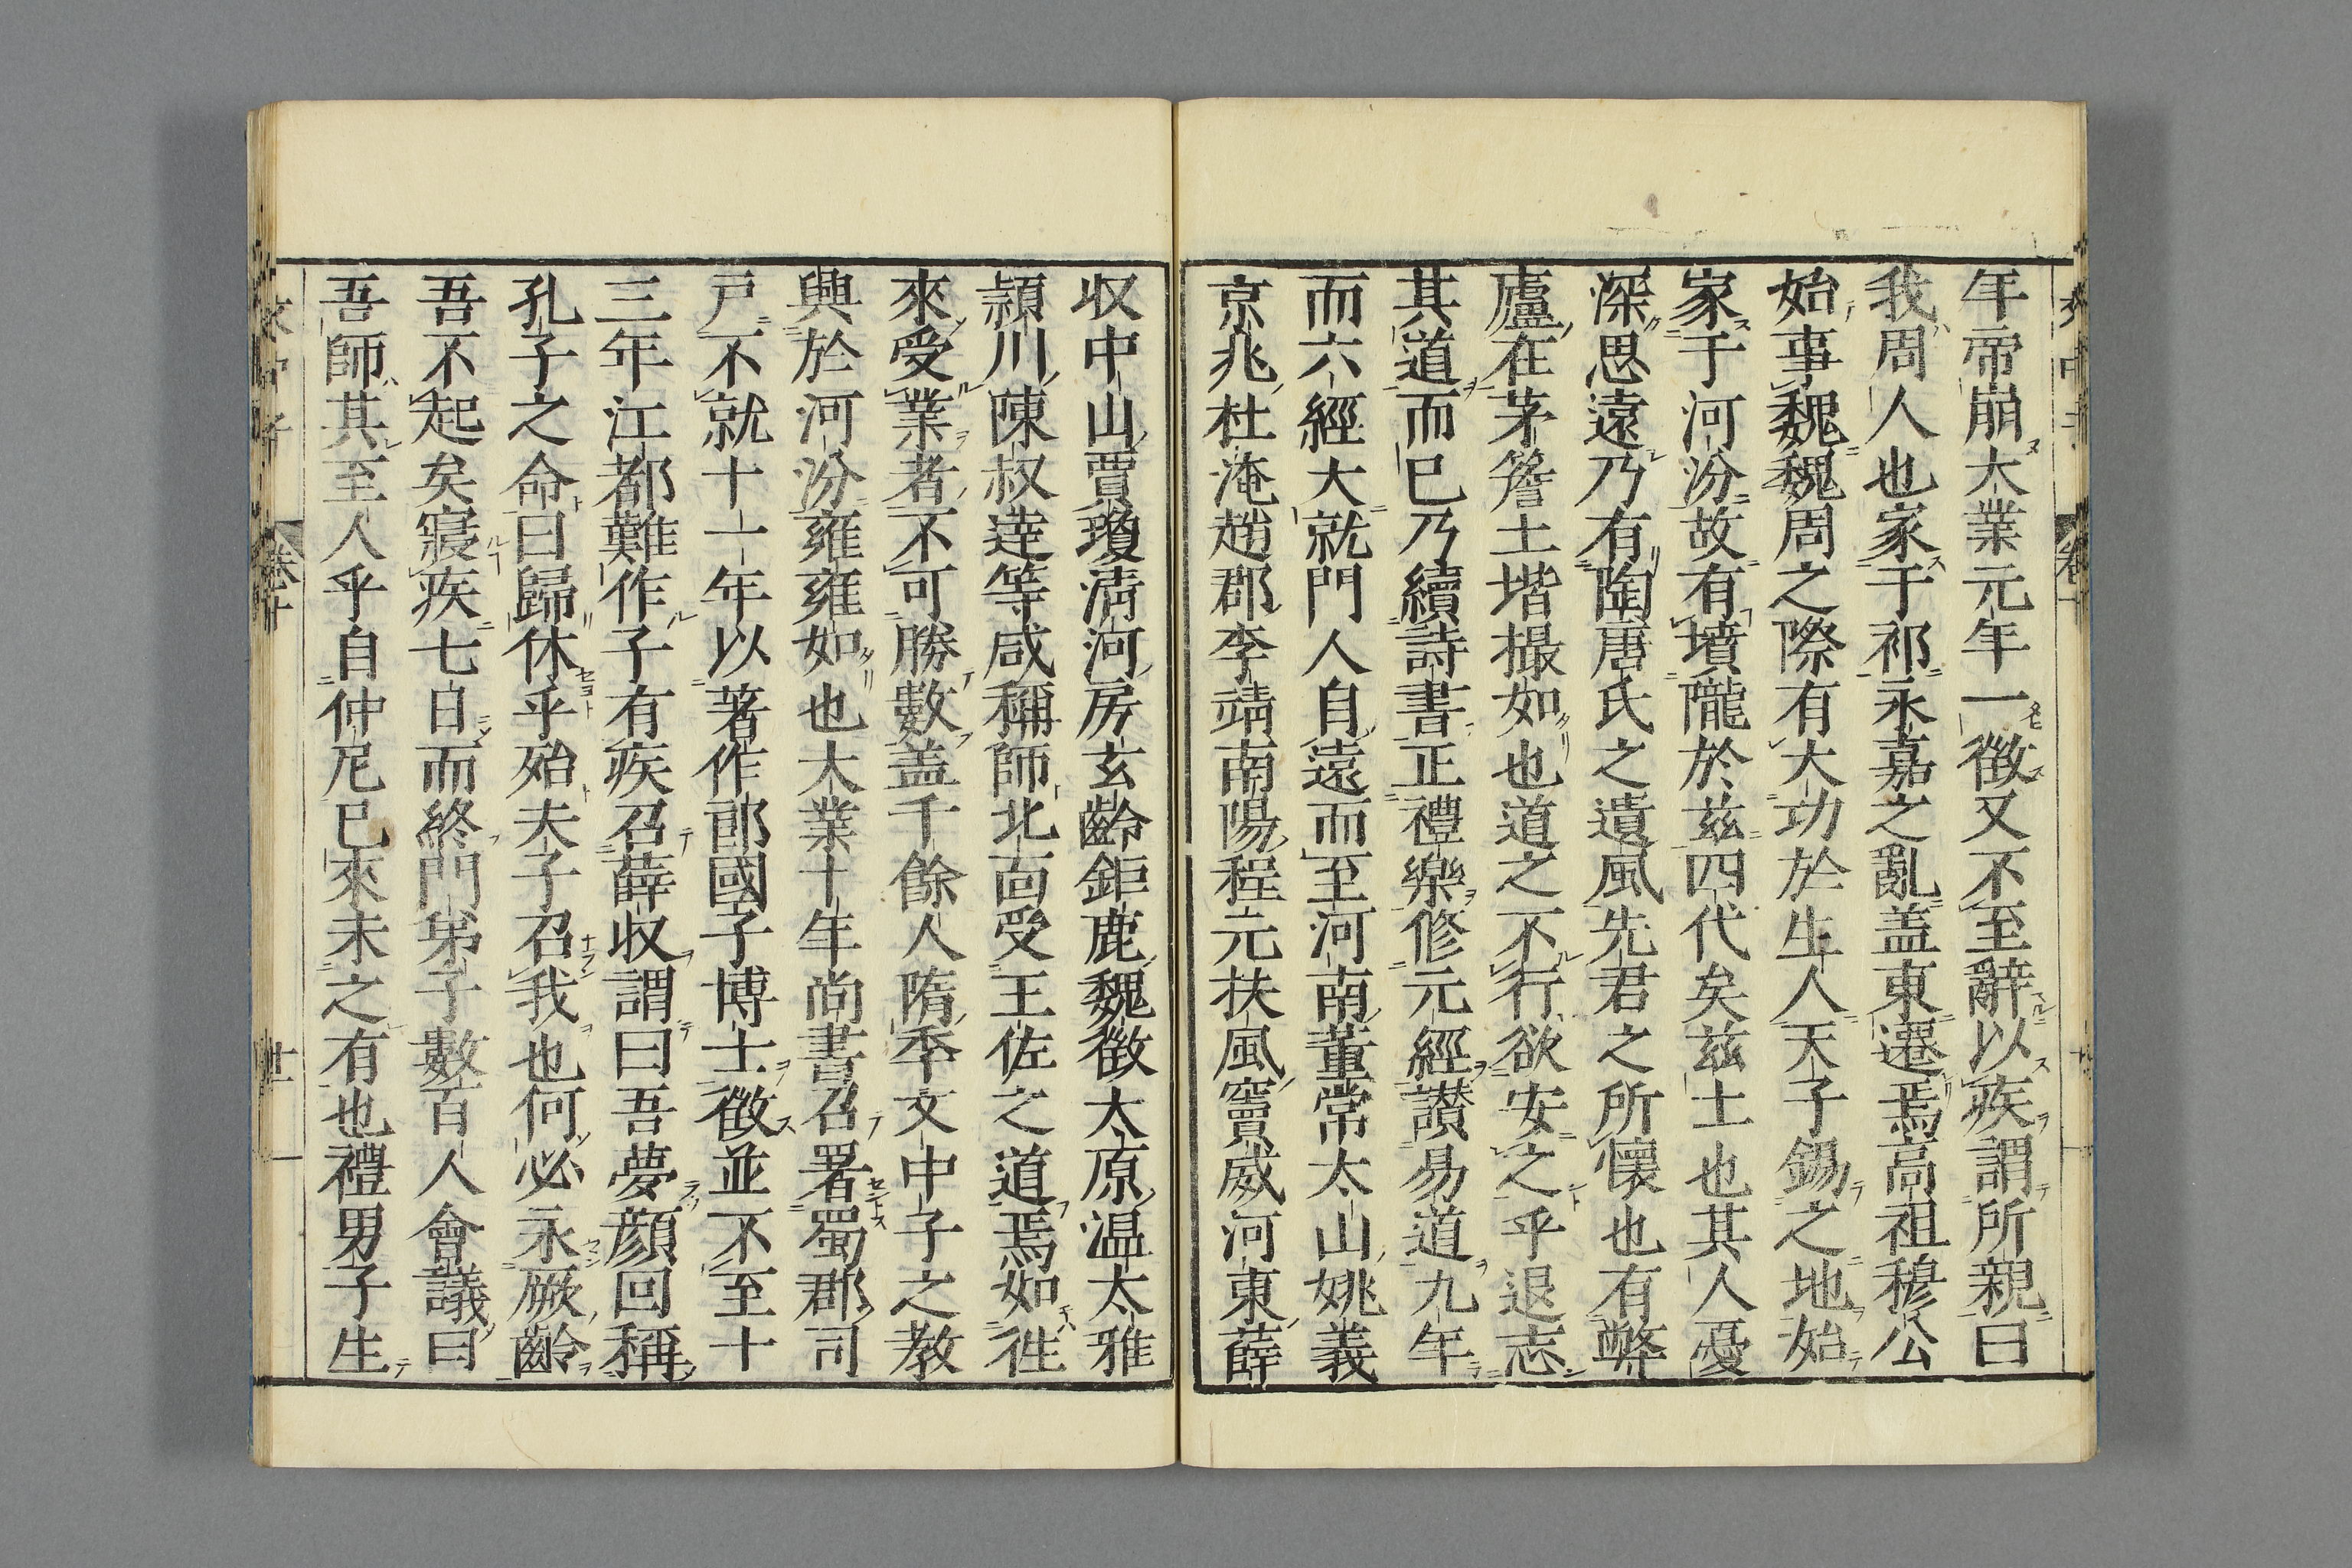 年帝崩大業元年一徴又不至辭以疾謂所親曰
我周人也家于祁永嘉之亂盖東遷焉高祖穆公
始事魏魏周之際有大功於生人天子錫之地始
家于河汾故有墳隴於兹四代矣兹土也其人憂
深思遠乃有陶唐氏之遺風先君之所懷也有弊
廬在茅簷土堦撮如也道之不行欲安之乎退志
其道而已乃續詩書正禮樂修元經讃易道九年
而六經大就門人自遠而至河南董常太山姚義
京兆杜淹趙郡李靖南陽程元扶風竇威河東薛
収中山賈瓊淸河房玄齡鉅鹿魏徴太原温太雅
頴川陳叔達等咸稱師北面受王佐之道焉如徃
來受業者不可勝數盖千餘人隋季文中子之教
興於河汾雍雍如也大業十年尚書召署蜀郡司
戸不就十一年以著作郎國子博士徴並不至十
三年江都難作子有疾召薛収謂曰吾夢顔回稱
孔子之命曰歸休乎殆夫子召我也何必永厥齡
吾不起矣寢疾七日而終門弟子數百人會議曰
吾師其至人乎自仲尼已來未之有也禮男子生
文中子 卷十 廿一